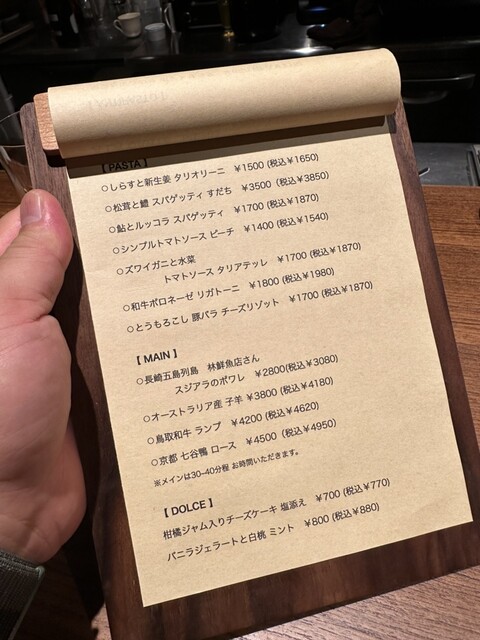 【PASTA】
○しらすと新生姜 タリオリーニ ¥1500 (税込¥1650)
○松茸と鱧 スパゲッティ すだち ¥3500 (税込¥3850)
○鮎とルッコラ スパゲッティ ¥1700 (税込¥1870)
○シンプルトマトソース ピーチ ¥1400 (税込¥1540)
○ズワイガニと水菜
トマトソース タリアテッレ ¥1700 (税込¥1870)
○和牛ボロネーゼ リガトーニ ¥1800 (税込¥1980)
○とうもろこし 豚バラ チーズリゾット ¥1700 (税込¥1870)
【 MAIN 】
○長崎五島列島 林鮮魚店さん
スジアラのポワレ ¥2800(税込¥3080)
○オーストラリア産 子羊 ¥3800 (税込¥4180)
○鳥取和牛 ランプ ¥4200 (税込¥4620)
○京都 七谷鴨 ロース ¥4500 (税込¥4950)
※メインは30-40分程 お時間いただきます。
【 DOLCE 】
柑橘ジャム入りチーズケーキ 塩添え ¥700 (税込¥770)
バニラジェラートと白桃 ミント ¥800 (税込¥880)